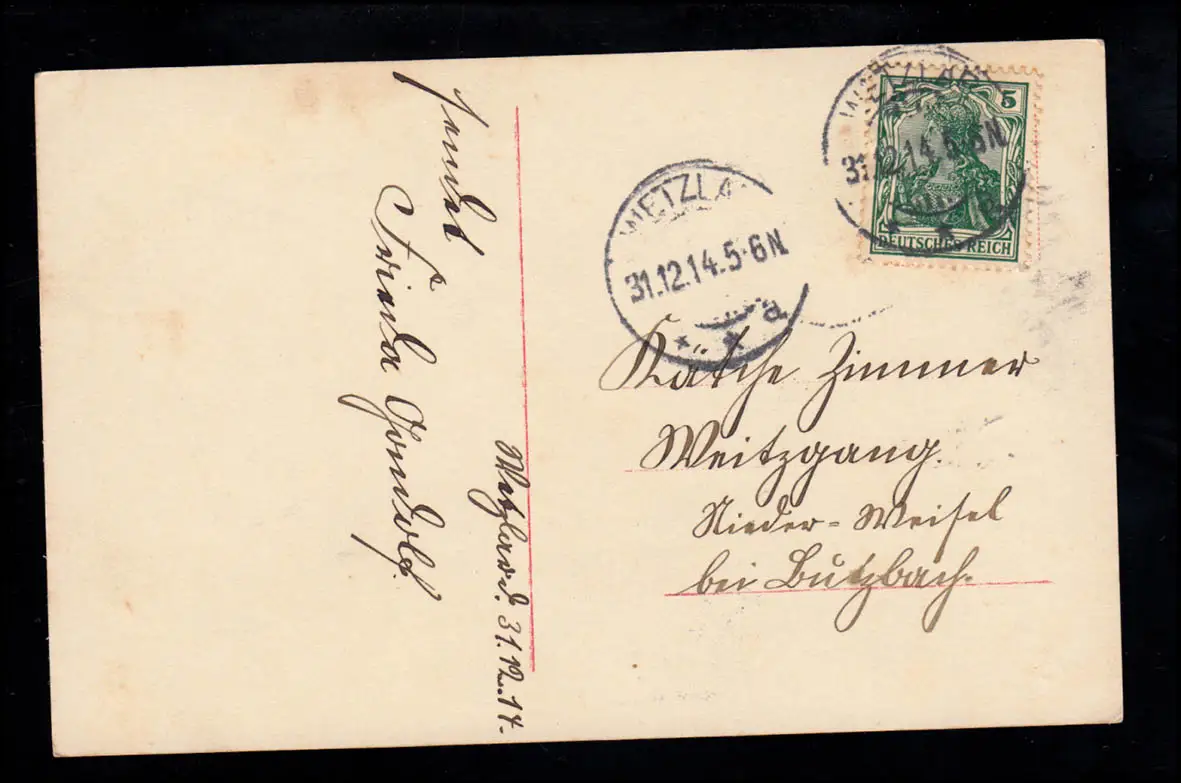 Sendet
Frieda
Wetzlar d. 31.12.14-
WETZLAR
31.12.14.5-6N
* * a
WETZLAR
31.12.14.5-6N
5 5
DEUTSCHES REICH
Käthe Zimmer
Weitzgang.
Nieder-Weisel
bei Butzbach.